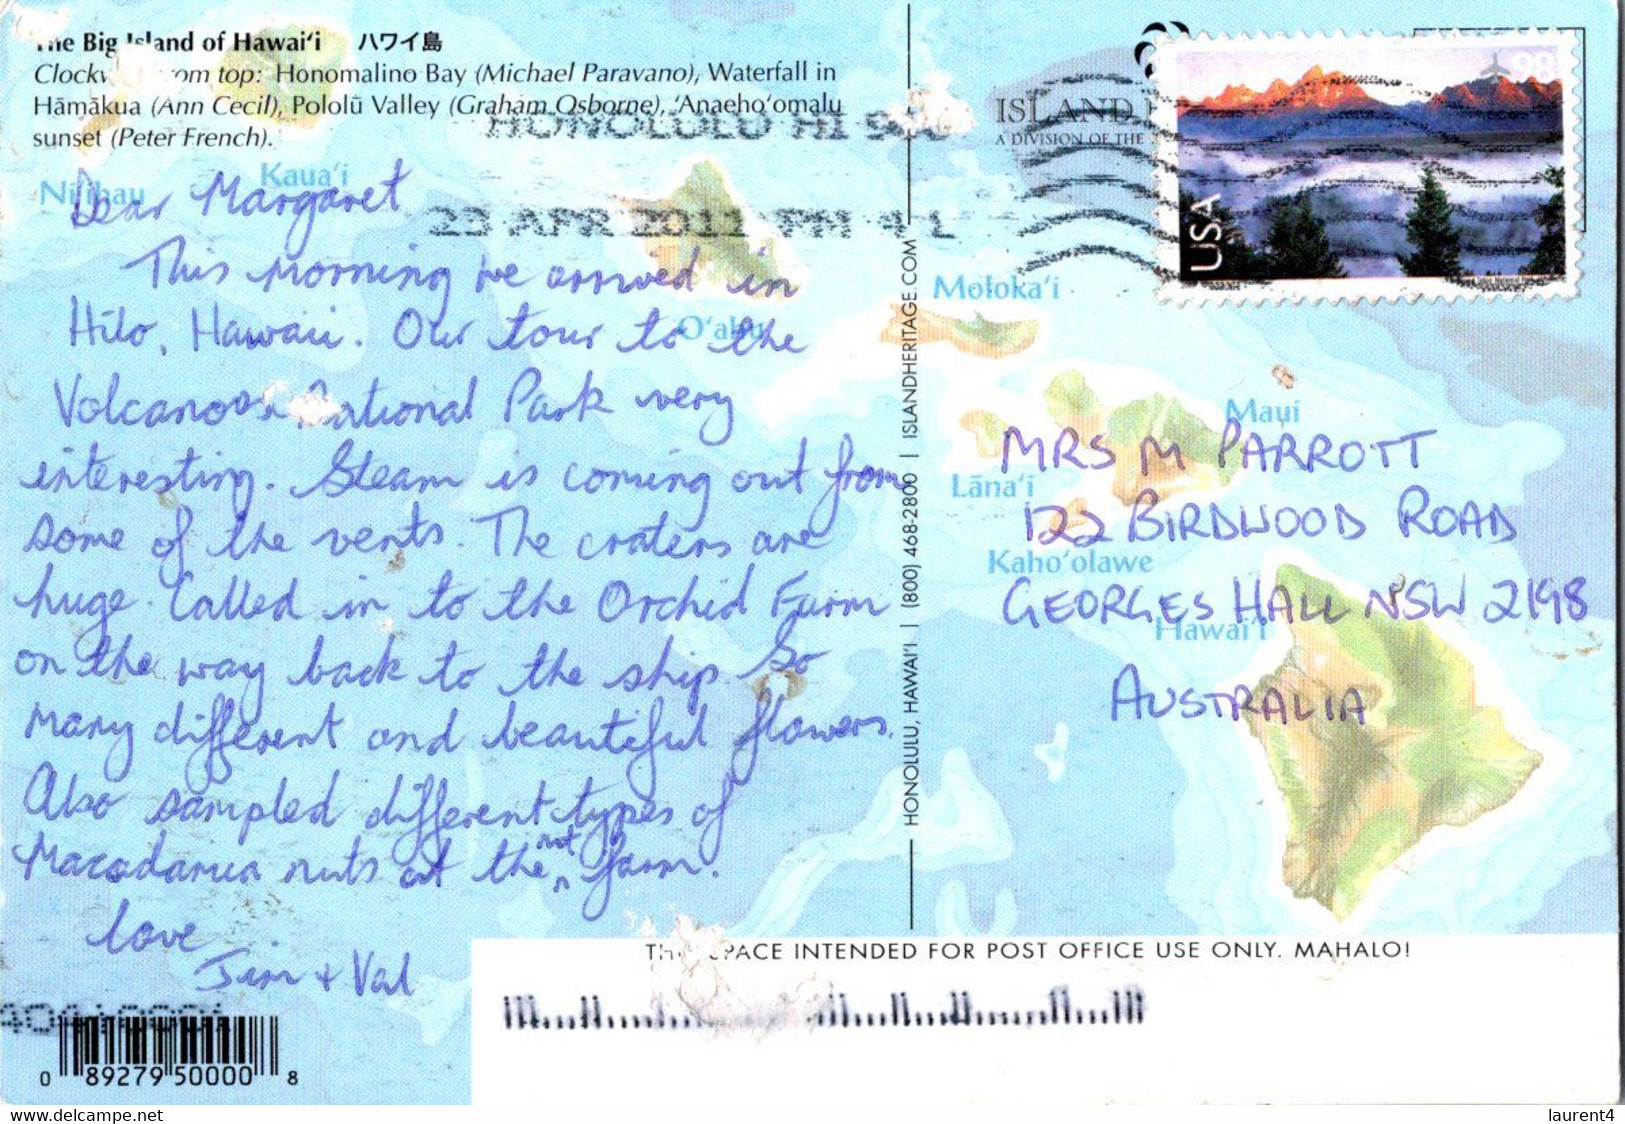 The Big Island of Hawai'i ハワイ島
Clockwise from top: Honomalino Bay (Michael Paravano), Waterfall in
Hāmākua (Ann Cecil), Pololū Valley (Graham Osborne), 'Anaeho'omalu
sunset (Peter French).
HONOLULU HI
23 APR 2011 PM 4 L
Ni'ihau
Kaua'i
O'ahu
Moloka'i
Maui
Lāna'i
Kaho'olawe
Hawai'i
Dear Margaret
This morning we arrived in
Hilo, Hawaii. Our tour to the
Volcanoes National Park very
interesting. Steam is coming out from
some of the vents. The craters are
huge. Called in to the Orchid Farm
on the way back to the ship. So
many different and beautiful flowers.
Also sampled different types of
Macadamia nuts at the nut farm.
love
Jim + Val
0 89279 50000 8
HONOLULU, HAWAI'I | (800) 468-2800 | ISLANDHERITAGE.COM
ISLAND
A DIVISION OF THE
USA
98
MRS M PARROTT
122 BIRDWOOD ROAD
GEORGES HALL NSW 2198
AUSTRALIA
SPACE INTENDED FOR POST OFFICE USE ONLY. MAHALO!
delcampe.net
laurent4